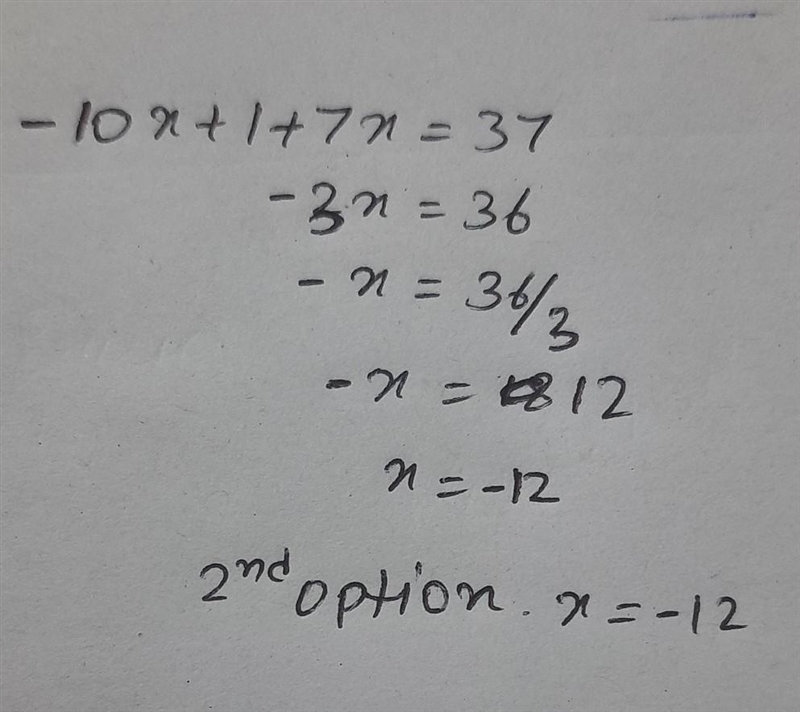 -10x+1+7x=37
-3x=36
-x=36/3
-x=12
x=-12
2nd option. x=-12